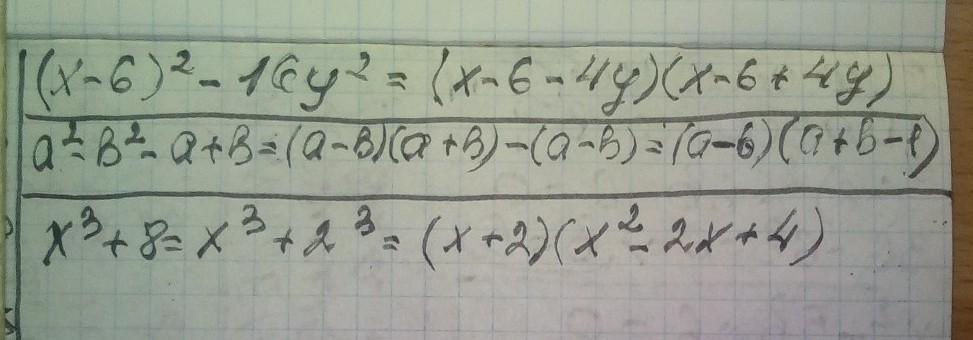 (x-6)² - 16y² = (x-6-4y)(x-6+4y)
a²-b²-a+b=(a-b)(a+b)-(a-b)=(a-b)(a+b-1)
x³+8=x³+2³=(x+2)(x²-2x+4)